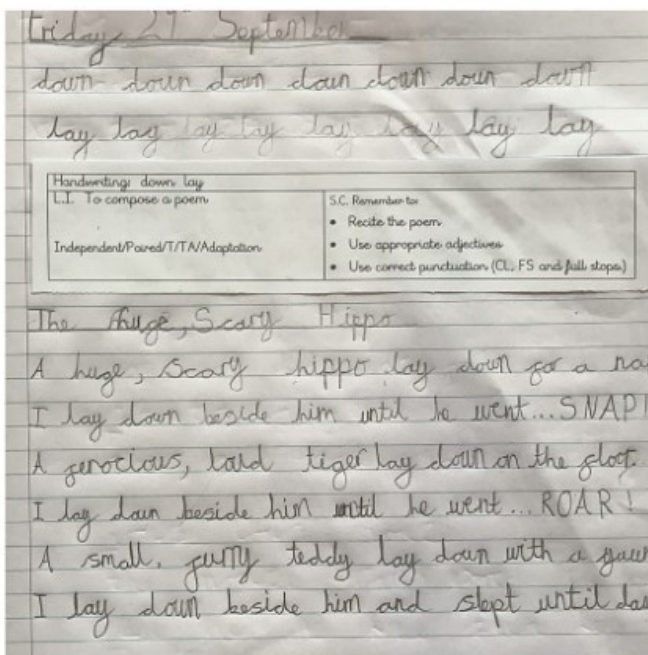 Friday 29th September
down down down down down down down
lay lay lay lay lay lay lay lay
Handwriting: down lay
L.I. To compose a poem
Independent/Paired/T/TA/Adaptation
S.C. Remember to:
• Recite the poem
• Use appropriate adjectives
• Use correct punctuation (CL, FS and full stops)
The huge, Scary Hippo
A huge, scary hippo lay down for a na
I lay down beside him until he went... SNAP!
A ferocious, loud tiger lay down on the floor.
I lay down beside him until he went... ROAR!
A small, furry teddy lay down with a yawn
I lay down beside him and slept until da